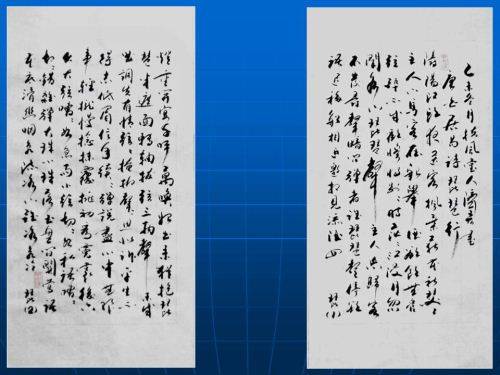 唐白居易詩琵琶行
潯陽江頭夜送客楓葉荻花秋瑟瑟
主人下馬客在船舉酒欲飲無管
絃醉不成歡慘將別別時茫茫江浸月忽
聞水上琵琶聲主人忘歸客
不發尋聲暗問彈者誰琵琶聲停欲
語遲移船相近邀相見添酒回
燈重開宴千呼萬喚始出來猶抱琵
琶半遮面轉軸撥絃三兩聲未成
曲調先有情絃絃掩抑聲聲思似訴平生不
得志低眉信手續續彈說盡心中無限
事輕攏慢撚抹復挑初為霓裳後六
幺大絃嘈嘈如急雨小絃切切如私語嘈嘈
切切錯雜彈大珠小珠落玉盤間關鶯語
花底滑幽咽泉流冰下